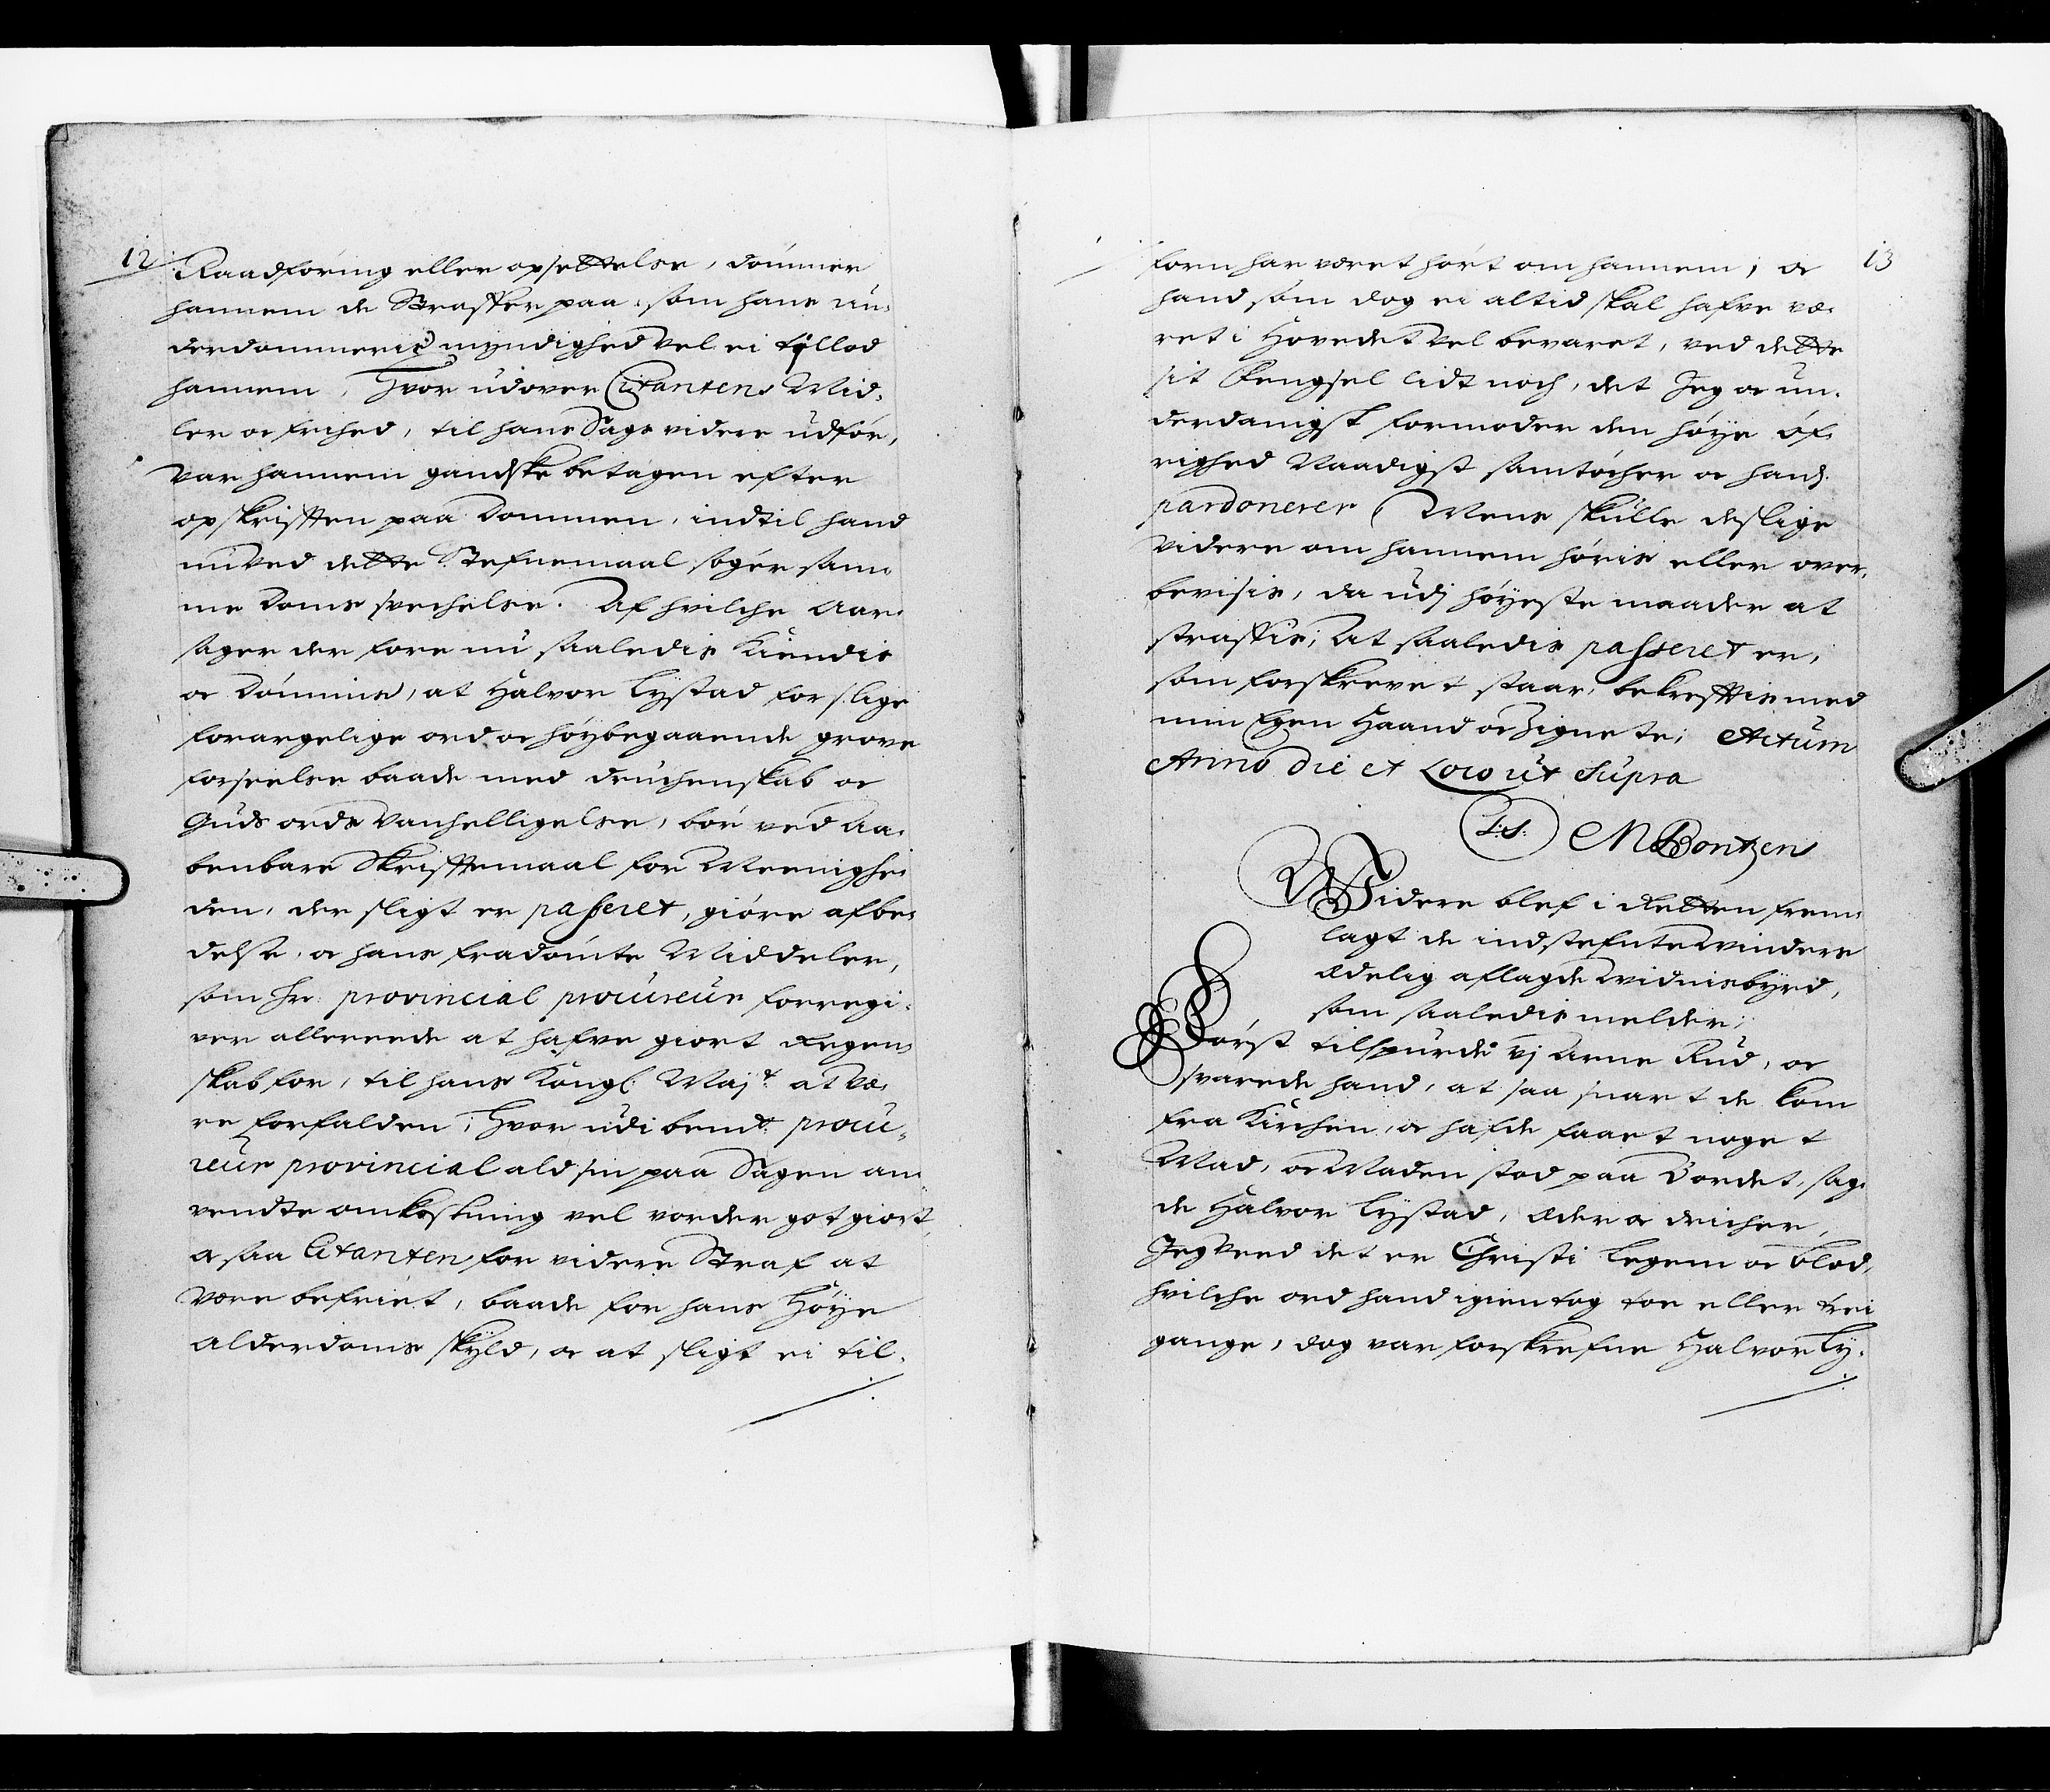 12
Raadføring eller opsettelse, dømmer
hannem de Straffer paa, som hans un¬
derdommeris myndighed vel ei tillod
hannem, Hvor udover Citantens Mid¬
ler oc frihed, til hans Sags videre udføer,
var hannem gandske betagen efter
opskrifften paa Dommen, indtil hand
nu ved dette Stefnemaal søger sam¬
me Doms svechelse. Af hvilche Aar¬
sager der fore nu saaledis Kiendis
oc Dømmis, at Halvor Lystad for slige
forargelige ord oc høybegaaende grove
forseelse baade med druchenskab oc
Guds ords vanhelligelse, bør ved Aa¬
benbare Skrifftemaal for Meenighe¬
den, der sligt er passeret, giøre afbe¬
delse, oc hans fradømte Middeler,
som hr. provincial procureur foregi¬
ver allereede at hafve giort Regen¬
skab for, til hans Kongl. Majt. at væ¬
re forfalden; Hvor udi bemt. procu¬
reur provincial ald sin paa Sagen an¬
vendte omkostning vel vorder got giort,
oc saa Citanten for videre Straf at
være befriet, baade for hans Høye
Alderdoms skyld, oc at sligt ei til¬
13
forn har været hørt om hannem, oc
hand som dog ei altid skal hafve væ¬
ret i Hovedet vel bevaret, ved dette
sit Fengsel lidt noch, det Jeg oc un¬
derdanigst formoder den høye øf¬
righed Naadigst samtøcher oc hand
pardonerer, Mens skulle deslige
videre om hannem høris eller over¬
bevisis, da udj høyeste maader at
straffis; At saaledis passeret er,
som forskrevet staar, bekrefftis med
min Egen Haand oc Zignete; Actum
Anno die et Loco ut Supra
L.S. M Bontzen
Widere blef i Retten frem¬
lagt de indstefnte Vinders
Ædelig aflagde Vidnisbyrd,
som saaledis melder;
Først tilspurde vj Arne Rud, oc
svarede hand, at saa snart de kom
fra Kirchen, oc hafde faaet noget
Mad, oc Maden stod paa Bordet, sag¬
de Halvor Lystad, Æder oc dricher,
Jeg Veed det er Christi Legem oc blod,
hvilche ord hand igientog toe eller trei
gange, dog var forskrefne Halvor Ly¬